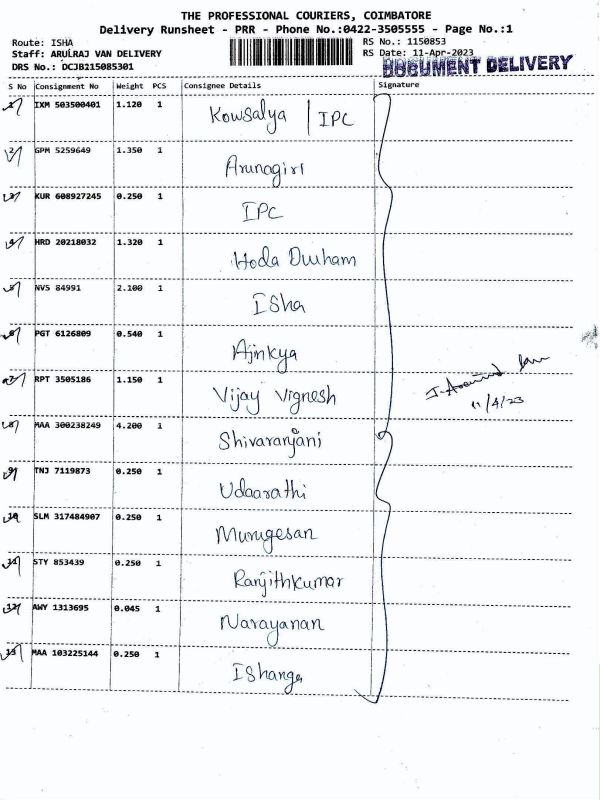 THE PROFESSIONAL COURIERS, COIMBATORE
Delivery Runsheet - PRR - Phone No.:0422-3505555 - Page No.:1
Route: ISHA RS No.: 1150853
Staff: ARULRAJ VAN DELIVERY RS Date: 11-Apr-2023
DRS No.: DCJB115085301 DOCUMENT DELIVERY
S No Consignment No Weight PCS Consignee Details Signature
1 IXM 503500401 1.120 1 Kowsalya | IPC
2 GPM 5259649 1.350 1 Arunagiri
3 KUR 608927245 0.250 1 IPC
4 HRD 20218032 1.320 1 Hoda Durham
5 NVS 84991 2.100 1 ISha
6 PGT 6126809 0.540 1 Ajinkya
7 RPT 3505186 1.150 1 Vijay Vignesh
11/4/23
8 MAA 300238249 4.200 1 Shivaranjani
9 TNJ 7119873 0.250 1 Udaarathi
10 SLM 317484907 0.250 1 Murugesan
11 STY 853439 0.250 1 Ranjithkumar
12 AWY 1313695 0.045 1 Narayanan
13 MAA 103225144 0.250 1 IShanga